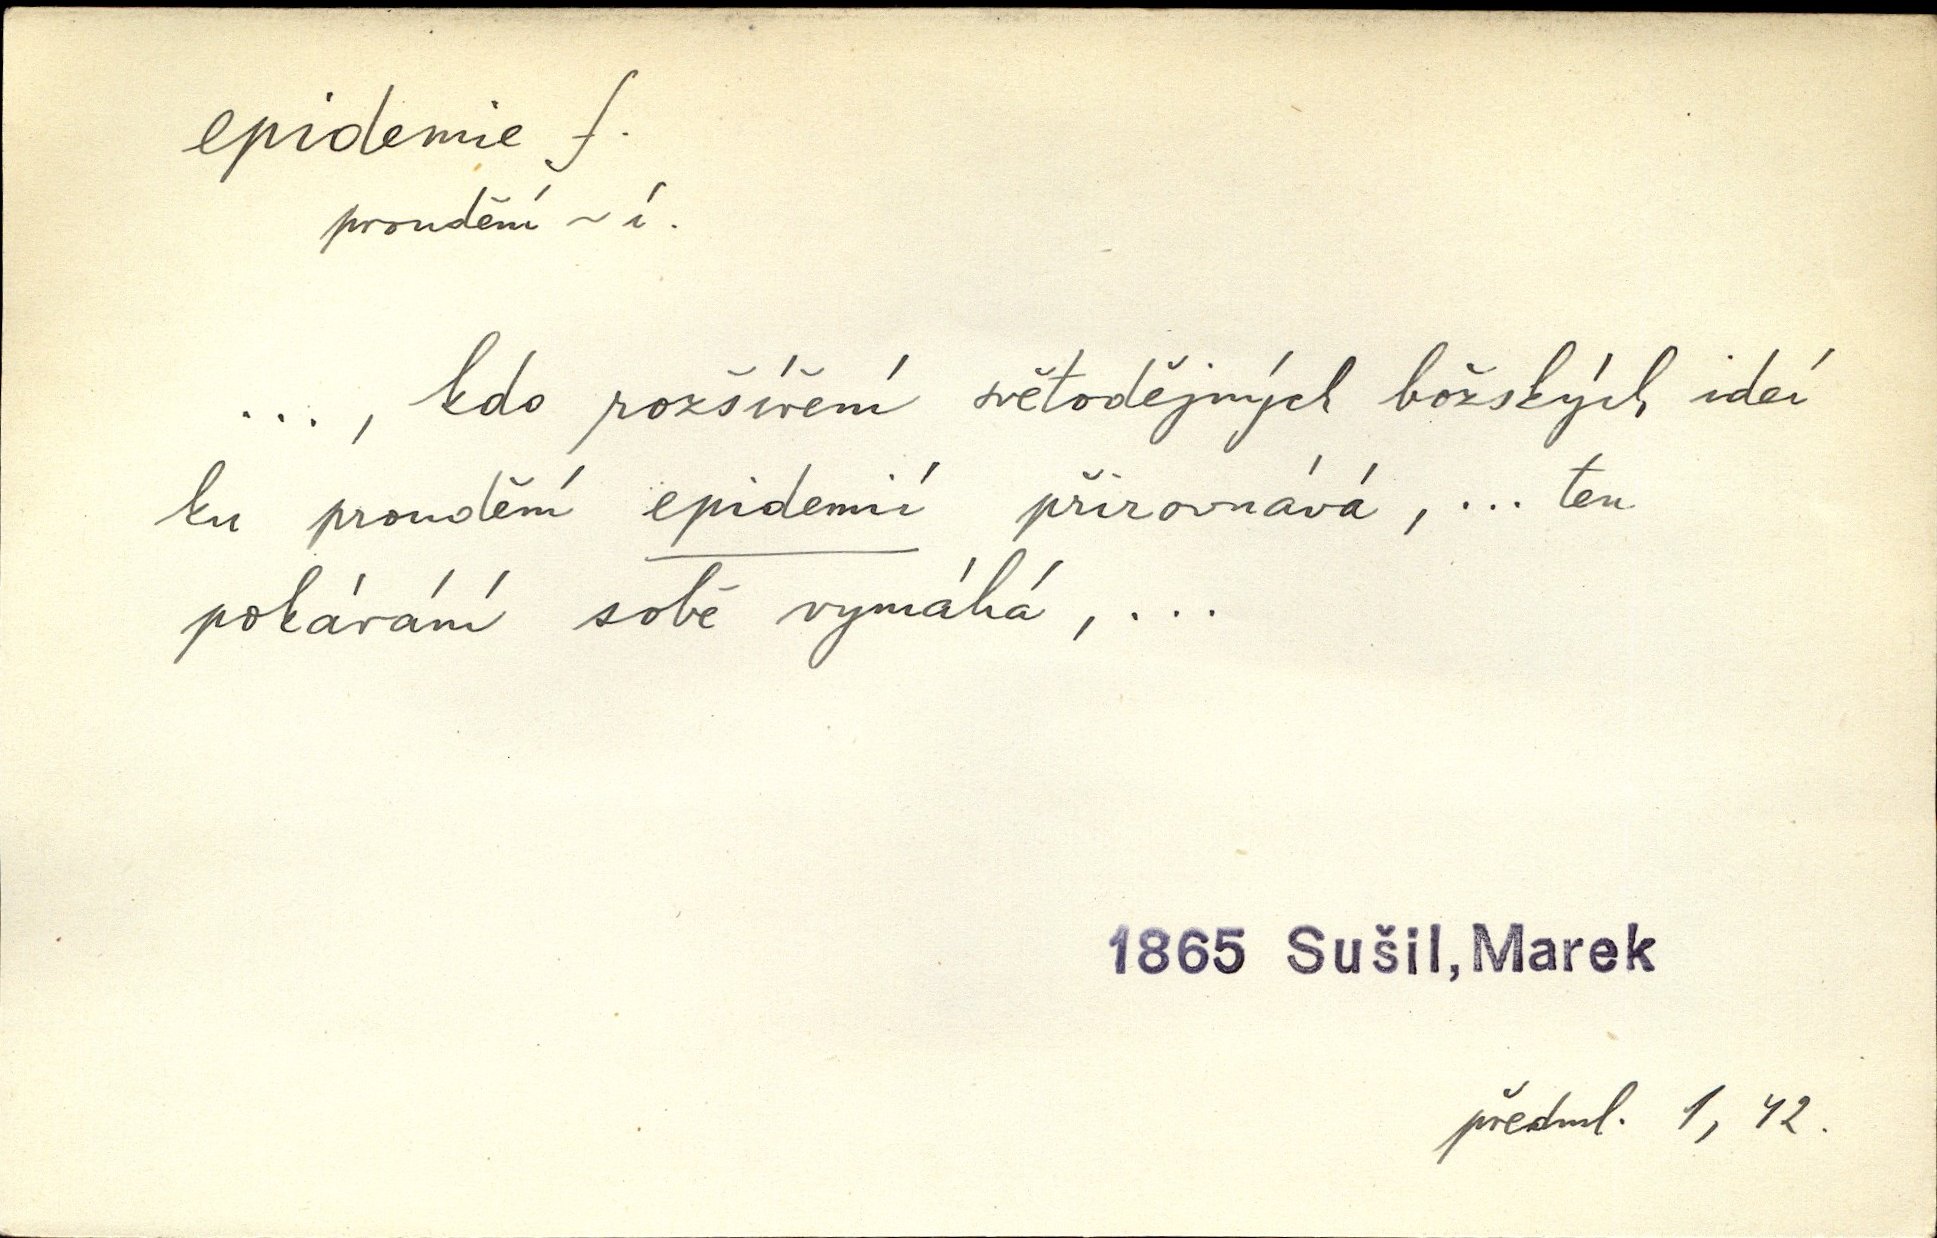 epidemie f.
proudění ~ í.
..., kdo rozšíření světodějných božských ideí
ku proudění epidemií přirovnává, ... ten
pokávání sobě vymáhá, ...
1865 Sušil, Marek
předml. 1, 42.